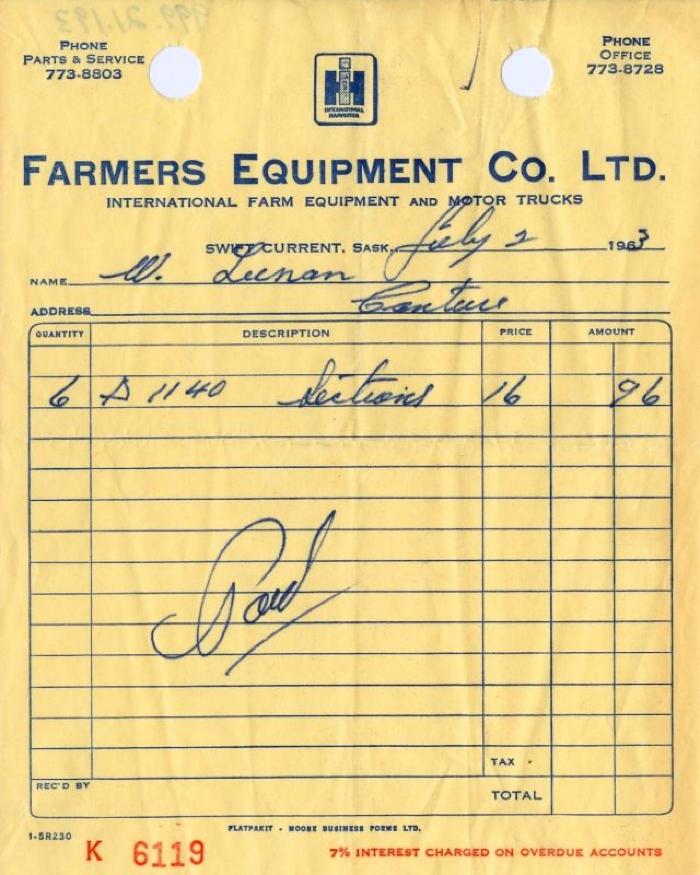 PHONE
PARTS & SERVICE
773-8803
PHONE
OFFICE
773-8728
IH
INTERNATIONAL
HARVESTER
FARMERS EQUIPMENT CO. LTD.
INTERNATIONAL FARM EQUIPMENT AND MOTOR TRUCKS
SWIFT CURRENT, SASK., July 2 1963
NAME W.
ADDRESS
QUANTITY DESCRIPTION PRICE AMOUNT
6 1140 Sections 16 96
Paid
TAX
REC'D BY TOTAL
1-5R230 FLATPAKIT - MOORE BUSINESS FORMS LTD.
K 6119 7% INTEREST CHARGED ON OVERDUE ACCOUNTS